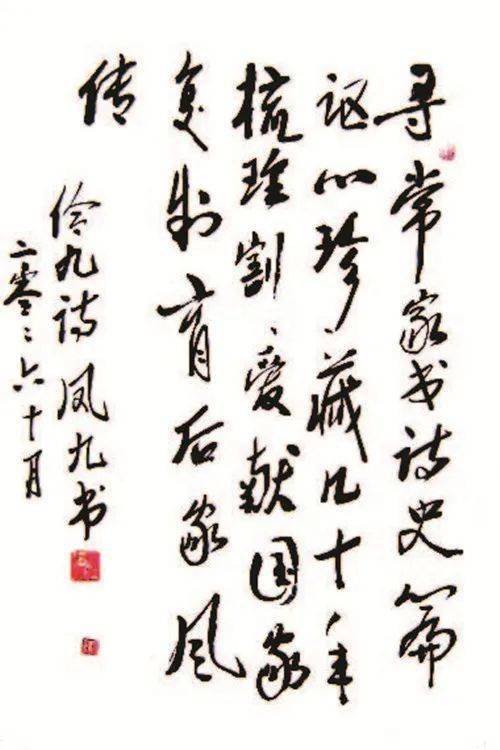 寻常家书诗史篇
讴心珍藏几十年
梳理割爱献国家
复制育后家风
传
伶九诗凤九书
二零〻六十月